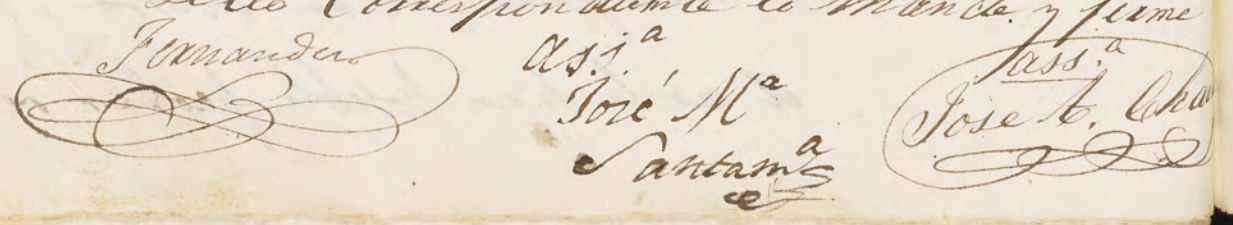 Correspondiente lo mandé y firmé
Fernandez
ass.ª
José Mª
Santamª
ass.ª
Jose A. Cha